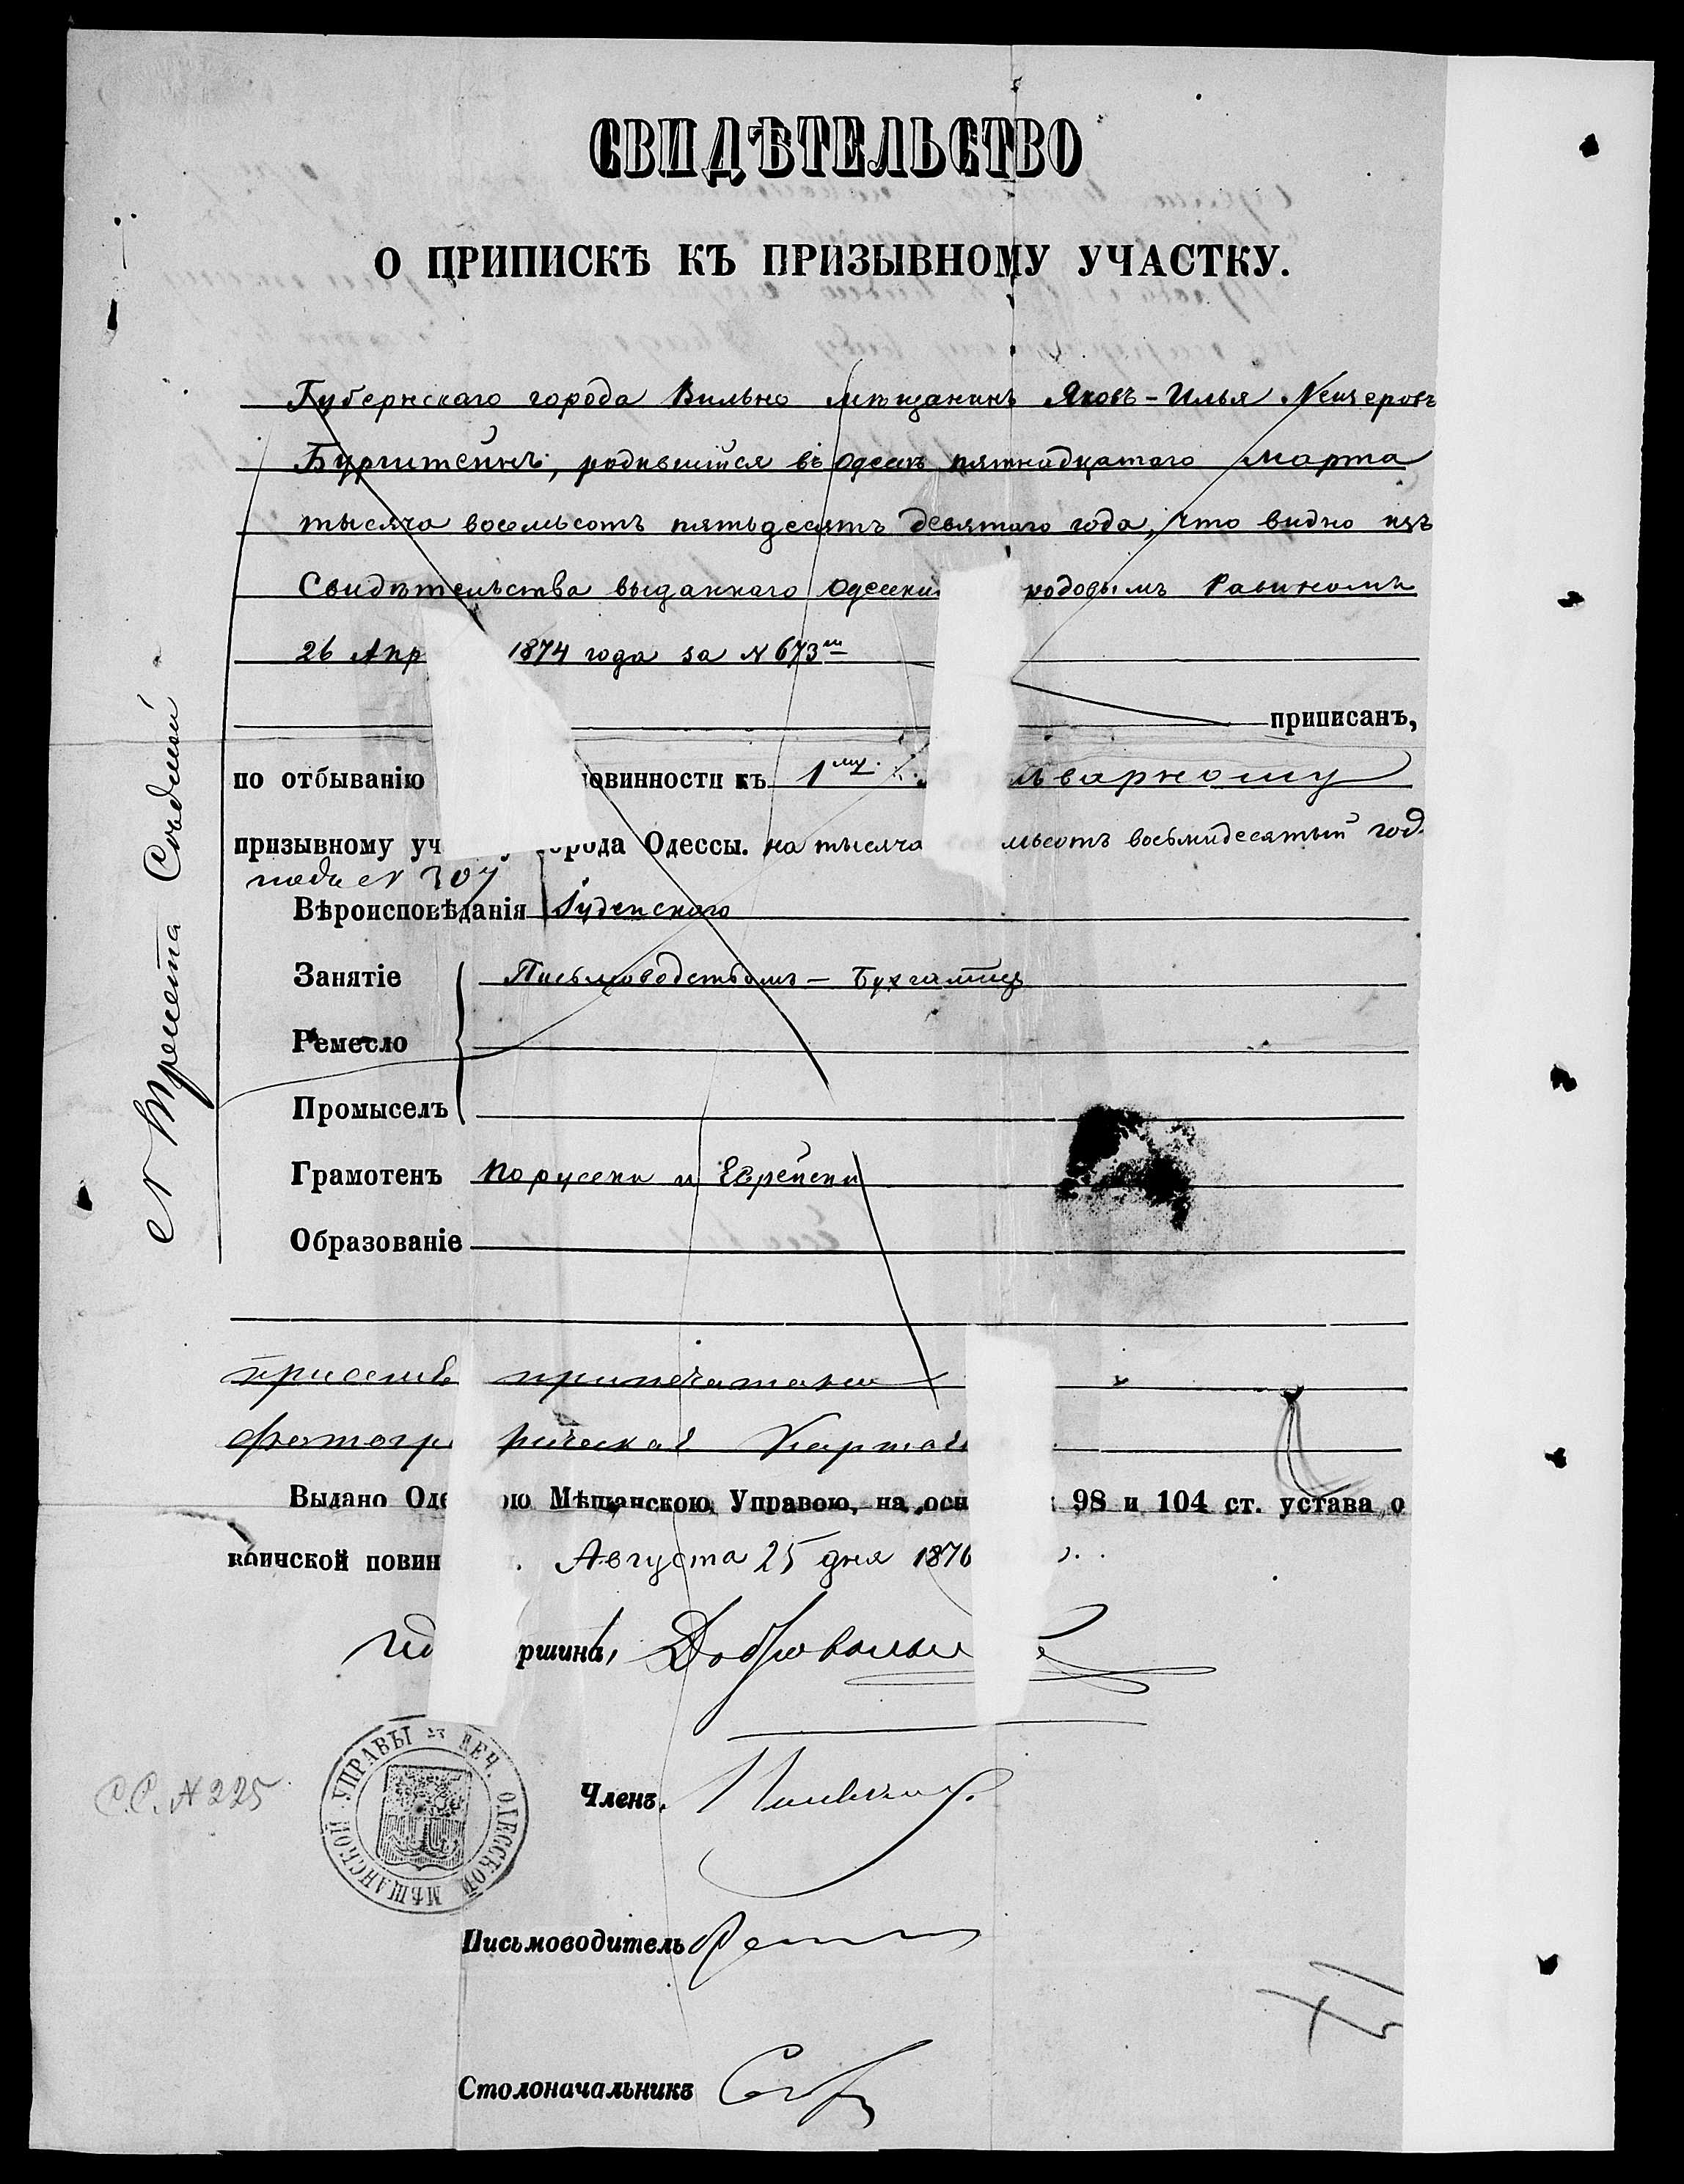 СВИДѢТЕЛЬСТВО
О ПРИПИСКѢ КЪ ПРИЗЫВНОМУ УЧАСТКУ.
Губернскаго города Вильно мѣщанинъ Яковъ-Илья
родившійся въ Одессѣ пятнадцатаго Марта
тысяча восемьсотъ пятьдесятъ девятаго года, что видно изъ
Свидѣтельства выданнаго Одески родовымъ Равиномъ
26 Апр 1874 года за № 673
приписанъ,
по отбыванію овинности къ 1му льварному
призывному уч у орода Одессы. на тысяча мьсотъ восьмидесятый год
подъ № 307
Вѣроисповѣданія Іудейскаго
Занятіе Письмоводствомъ —
Ремесло
Промыселъ
Грамотенъ По русски и Еврейски
Образованіе
припечатана
фотогр ическая
Выдано Оде ою Мѣщанскою Управою, на осн 98 и 104 ст. устава о
воинской повин . Августа 25 дня 1876
ршина,
ПЕЧ. ОДЕССКОЙ МѢЩАНСКОЙ УПРАВЫ
С.С. № 225
Членъ.
Письмоводитель
Столоначальникъ
№ Триста Седьмой